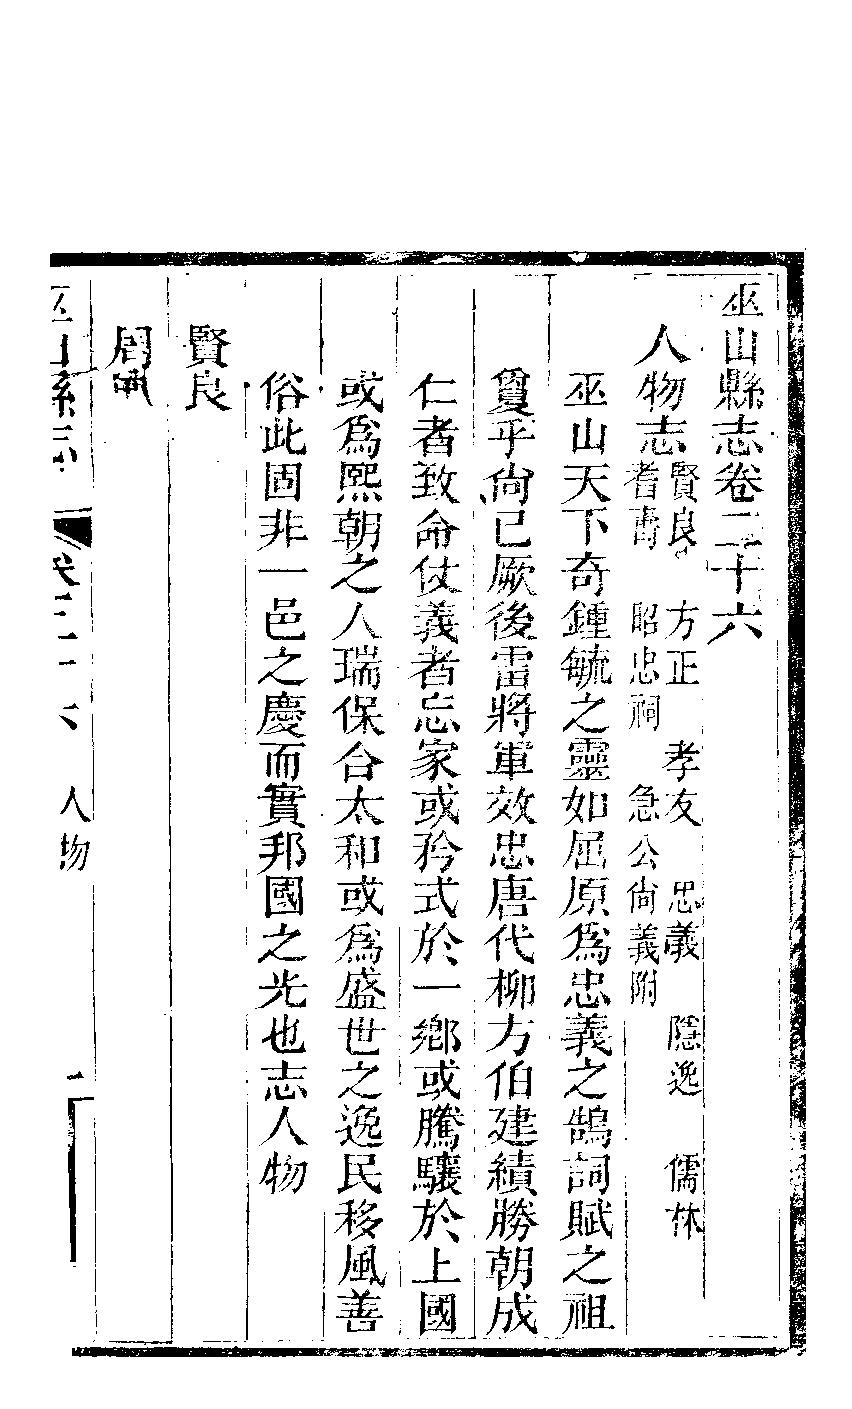 巫山縣志卷二十六
人物志
賢良 方正 孝友 忠義 隱逸 儒林
耆壽 昭忠祠 急公尙義附
巫山天下奇鍾毓之靈如屈原爲忠義之鵠詞賦之祖
敻乎尙已厥後雷將軍效忠唐代柳方伯建績勝朝成
仁者致命仗義者忘家或矜式於一鄉或騰驤於上國
或爲熙朝之人瑞保合太和或爲盛世之逸民移風善
俗此固非一邑之慶而實邦國之光也志人物
賢良
周
巫山縣志 卷二十六 人物 一